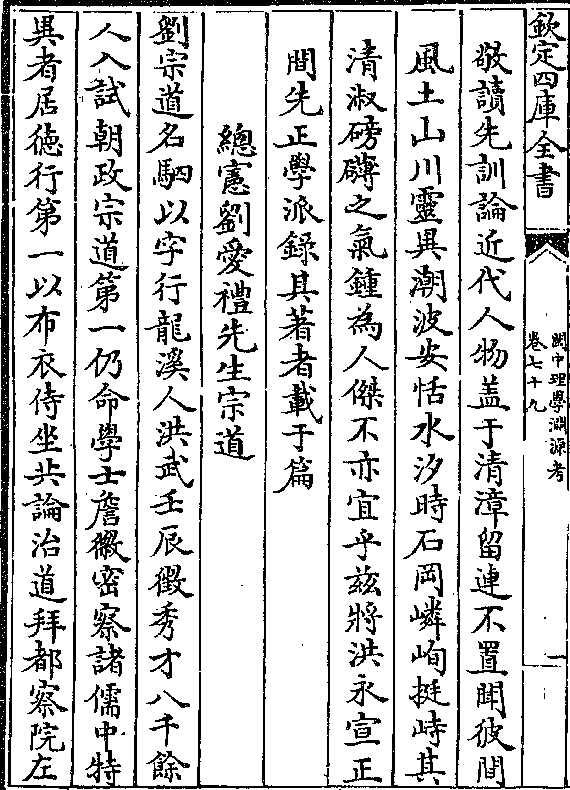 欽定四庫全書
閩中理學淵源考
卷七十九
一
敬讀先訓論近代人物蓋于清漳留連不置聞彼間
風土山川靈異潮波安恬水汐時石岡嶙峋挺峙其
清淑磅礴之氣鍾為人傑不亦宜乎兹將洪永宣正
間先正學派録其著者載于篇
總憲劉愛禮先生宗道
劉宗道名駟以字行龍溪人洪武壬辰徵秀才八千餘
人入試朝政宗道第一仍命學士詹徽密察諸儒中特
異者居徳行第一以布衣侍坐共論治道拜都察院左